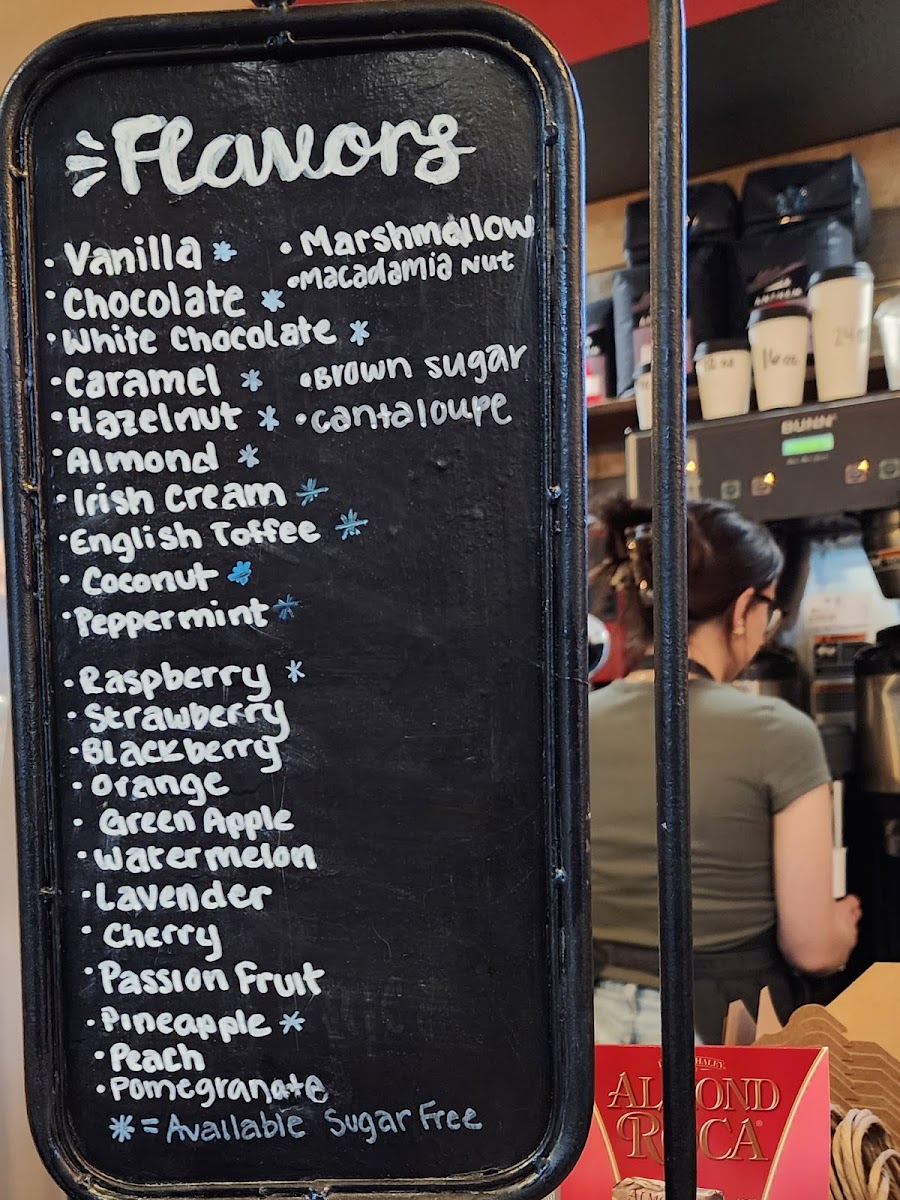 Flavors
• Vanilla *
• Chocolate *
• White Chocolate *
• Caramel *
• Hazelnut *
• Almond *
• Irish Cream *
• English Toffee *
• Coconut *
• Peppermint *
• Raspberry *
• Strawberry
• Blackberry
• Orange
• Green Apple
• Watermelon
• Lavender
• Cherry
• Passion Fruit
• Pineapple *
• Peach
• Pomegranate
* = Available Sugar Free
• Marshmallow
• Macadamia Nut
• Brown sugar
• cantaloupe
12 oz
16 oz
24 oz
BUNN
ALMOND
ROCA